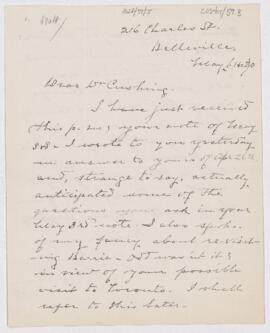 216 Charles St.
Belleville,
May
Dear Dr Cushing,
I have just received
this p. m. your note of May
3rd. I wrote to you yesterday
in answer to yours of Apr 26th
and, strange to say, actually
anticipated some of the
questions you ask in your
May 3rd note. I also spoke
of my fancy about re-visit-
ing Barrie -
in view of your possible
visit to Toronto. I shall
refer to this later.